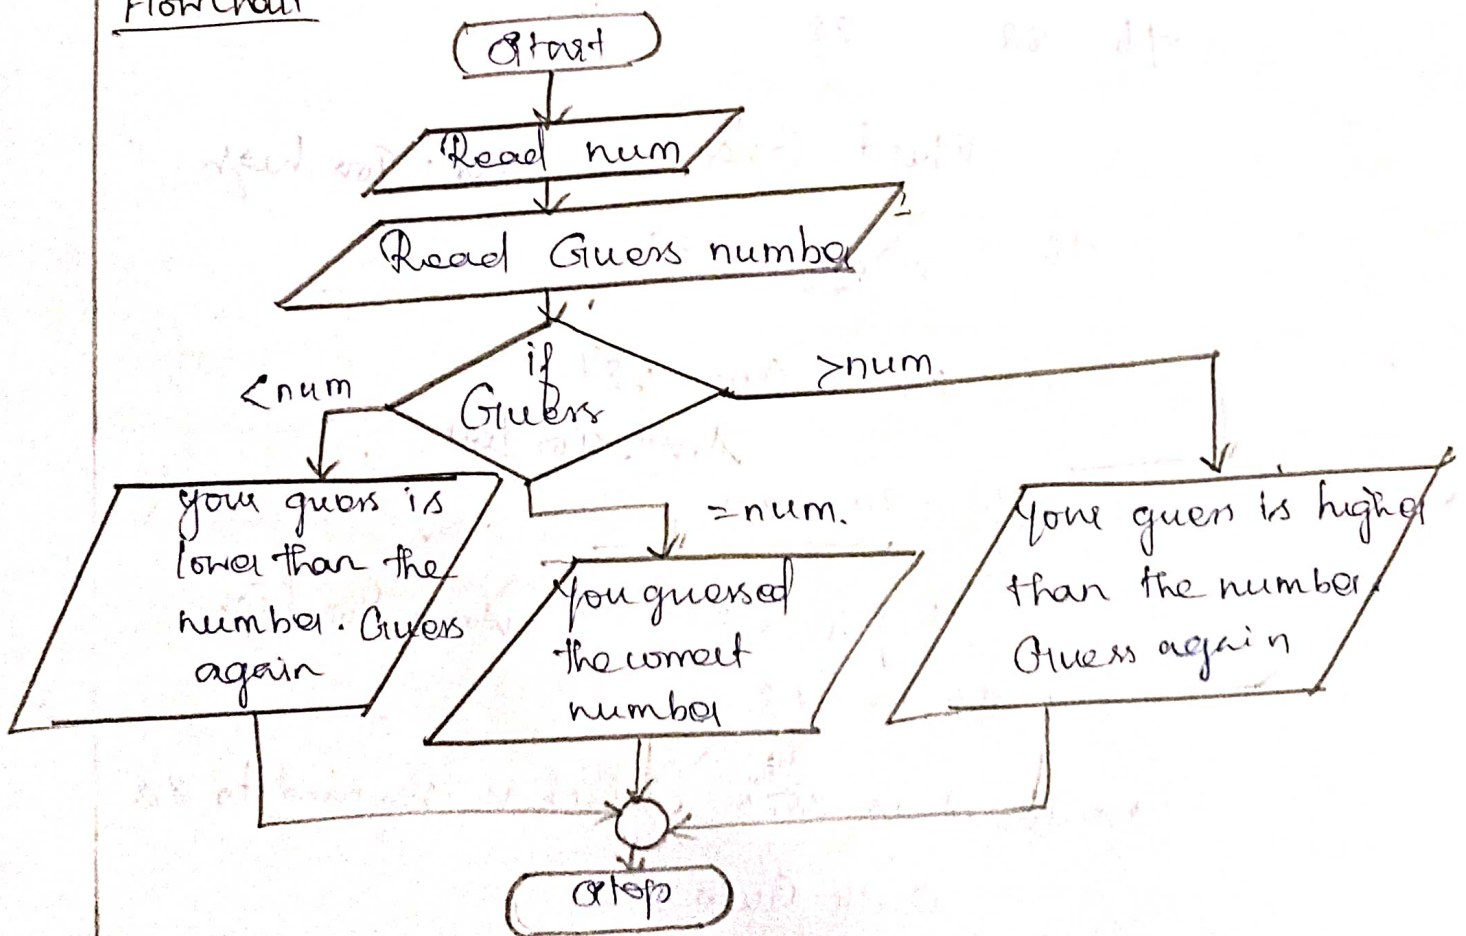 Flowchart
Start
Read num
Read Guess number
if
Guess
<num
>num.
=num.
your guess is
lower than the
number. Guess
again
You guessed
the correct
number
Your guess is higher
than the number.
Guess again
Stop